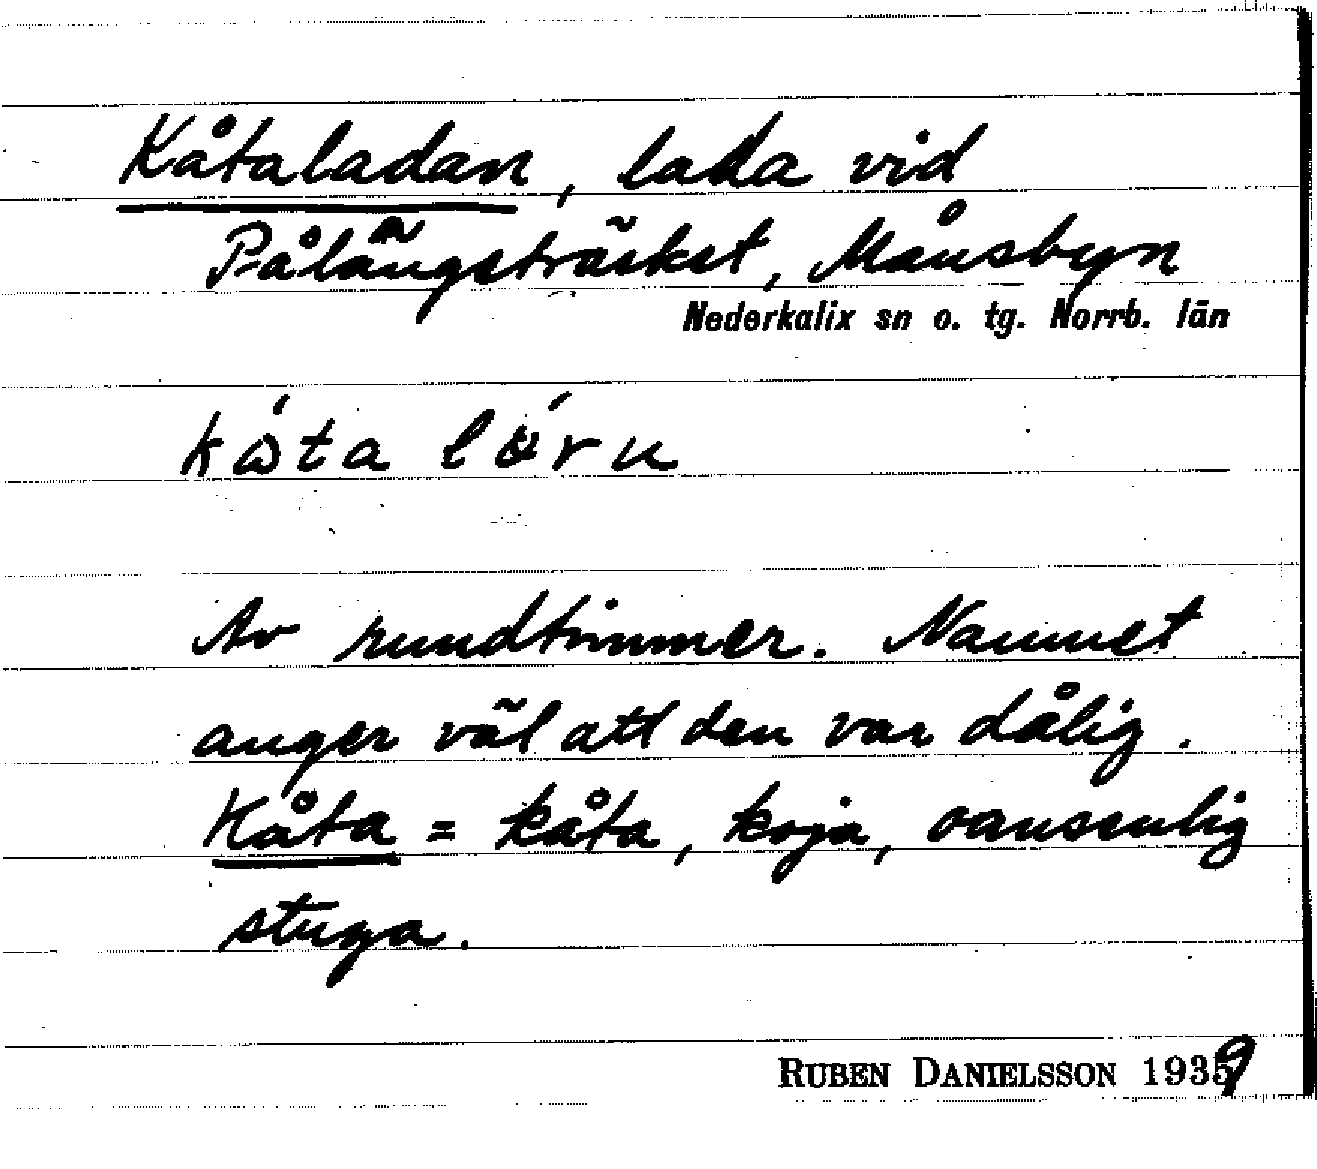 Kåtaladan, lada vid
Pålängeträsket, Månsbyn
Nederkalix sn o. tg. Norrb. län
Av rundtimmer. Namnet
anger väl att den var dålig.
Kåta = kåta, koja, oansenlig
stuga.
RUBEN DANIELSSON 1939